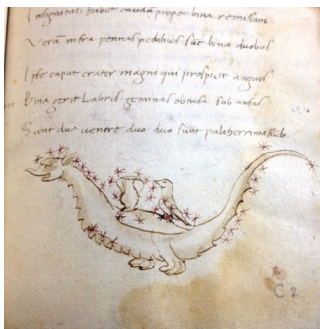 habet caudā proper bina remissam
infra pennas pedibus sūt bina duobus
Ipse caput crater magni qui prospicit anguis
Bina gerit Labris geminas obtusa sub
Sunt due ventre duo duo sunt fūdo.
C 2